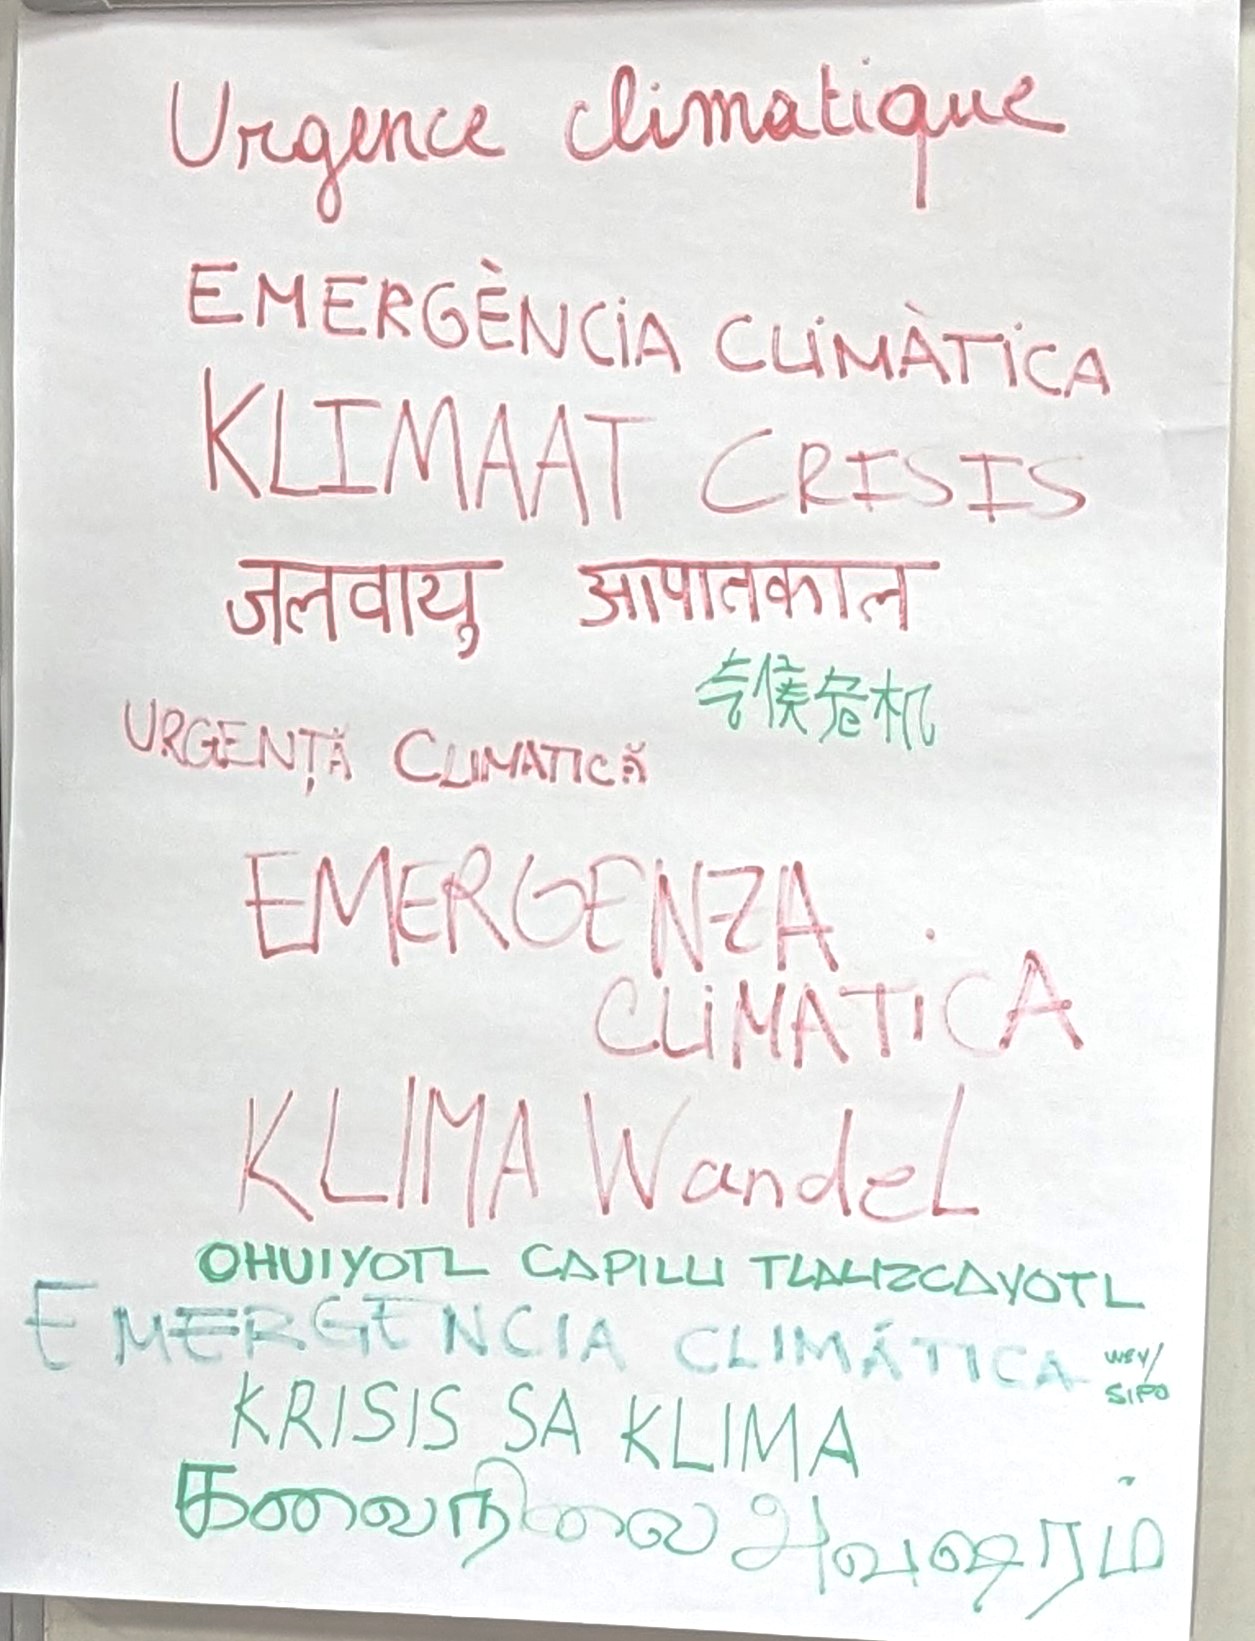 Urgence climatique
EMERGÈNCIA CLIMÀTICA
KLIMAAT CRISIS
जलवायु आपातकाल
气候危机
URGENȚĂ CLIMATICĂ
EMERGENZA
CLIMATICA
KLIMA Wandel
OHUIYOTL CAPILLI TLALIZCAYOTL
EMERGENCIA CLIMÁTICA WEY/
SIPO
KRISIS SA KLIMA